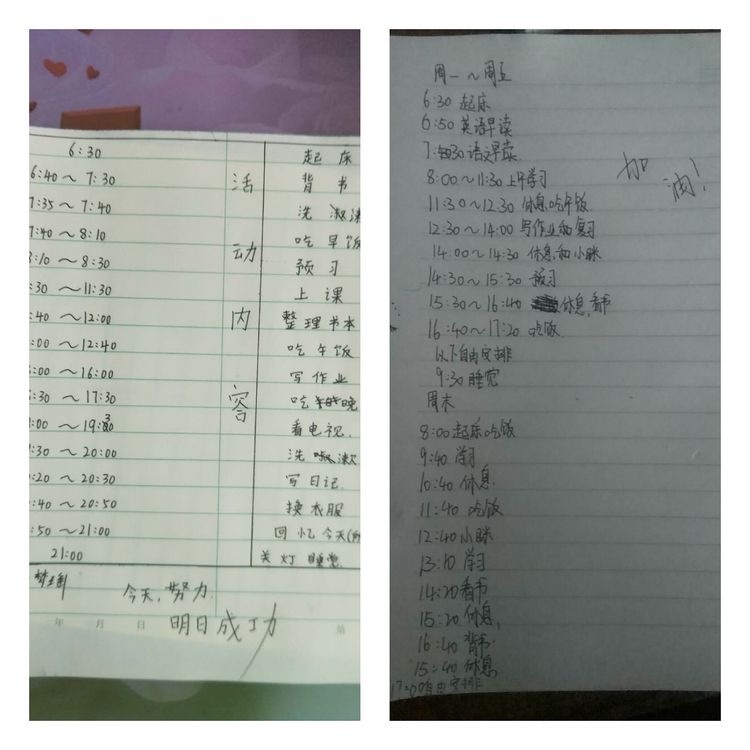 6:30 起床
6:40～7:30 活 背书
7:35～7:40 洗漱
7:40～8:10 动 吃早饭
8:10～8:30 预习
:30～11:30 上课
:40～12:00 内 整理书本
:00～12:40 吃午饭
:00～16:00 写作业
:30～17:30 容 吃晚
:00～19:30 看电视.
:30～20:00 洗漱
:20～20:30 写日记.
:40～20:50 换衣服
:50～21:00 回忆今天
21:00 关灯睡觉.
今天,努力.
明日成功
年 月 日 第
周一～周五
6:30 起床
6:50 英语早读
7:30 语文早读.
8:00～11:30 上午学习
11:30～12:30 休息吃午饭.
12:30～14:00 写作业和复习
14:00～14:30 休息和小眯
14:30～15:30 预习
15:30～16:40 休息,看书
16:40～17:20 吃饭.
以下自由安排
9:30 睡觉
周末
8:00 起床吃饭
9:40 学习
10:40 休息.
11:40 吃饭
12:40 小眯
13:10 学习
14:20 看书
15:20 休息.
16:40 背书
15:40 休息
17:00 自由安排
加油!